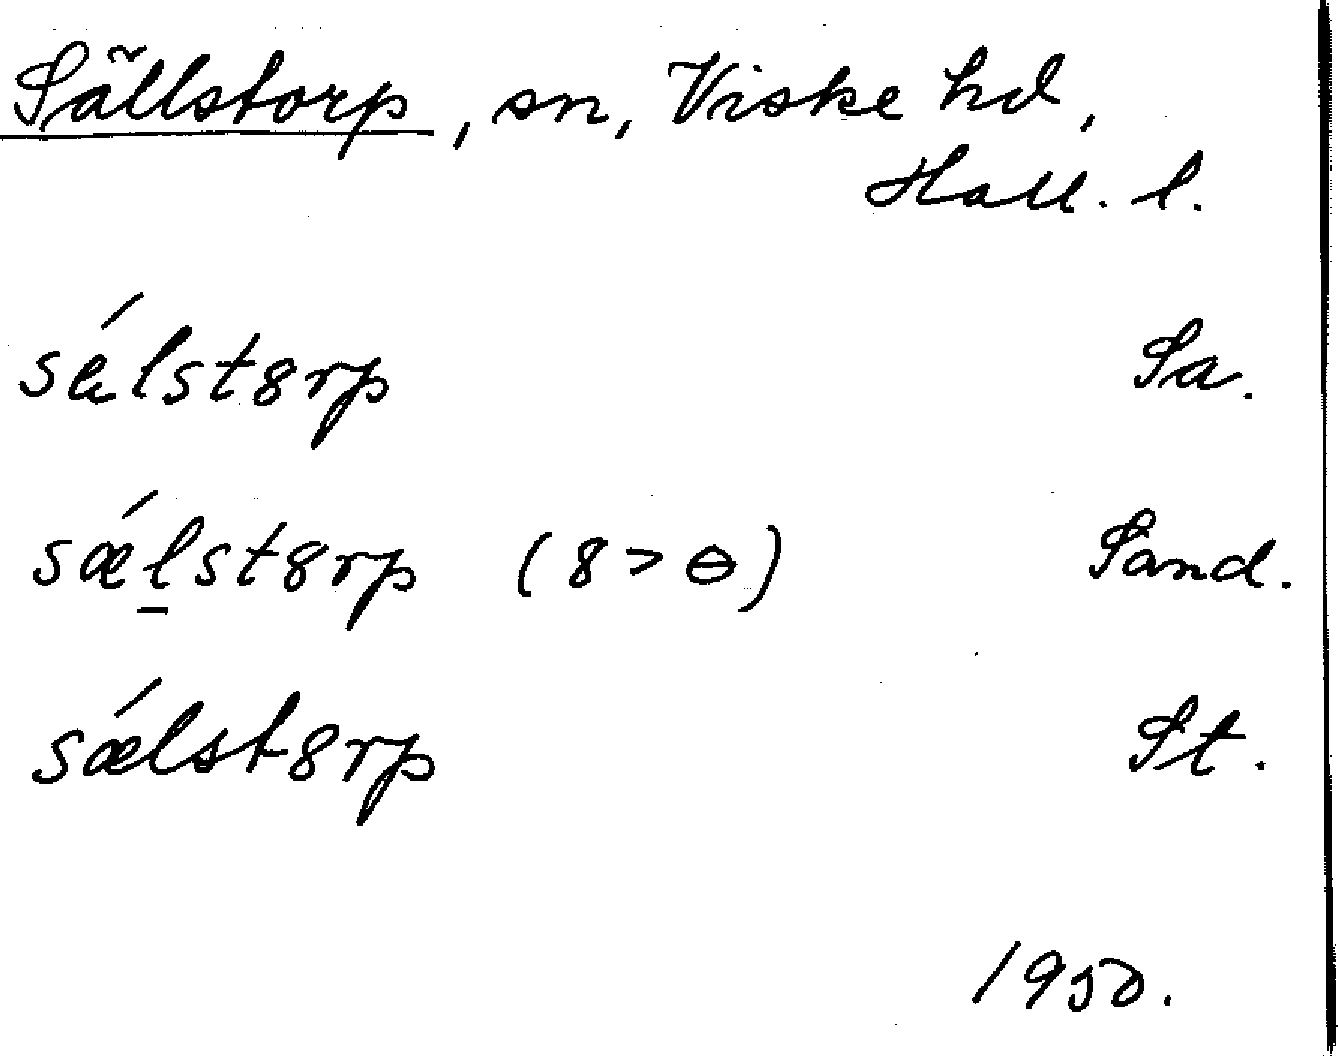 Sällstorp, sn, Viske hd,
Hall. l.
sǽlstȣrp Sa.
sǽl̠stȣrp (ȣ > ɵ) Sand.
sǽlstȣrp St.
1950.